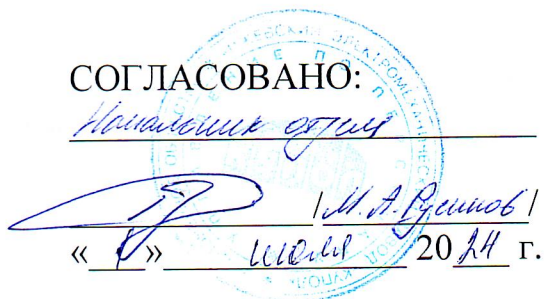 СОГЛАСОВАНО:
Начальник отдела
/ М. А. Русинов /
« 1 » июля 20 24 г.